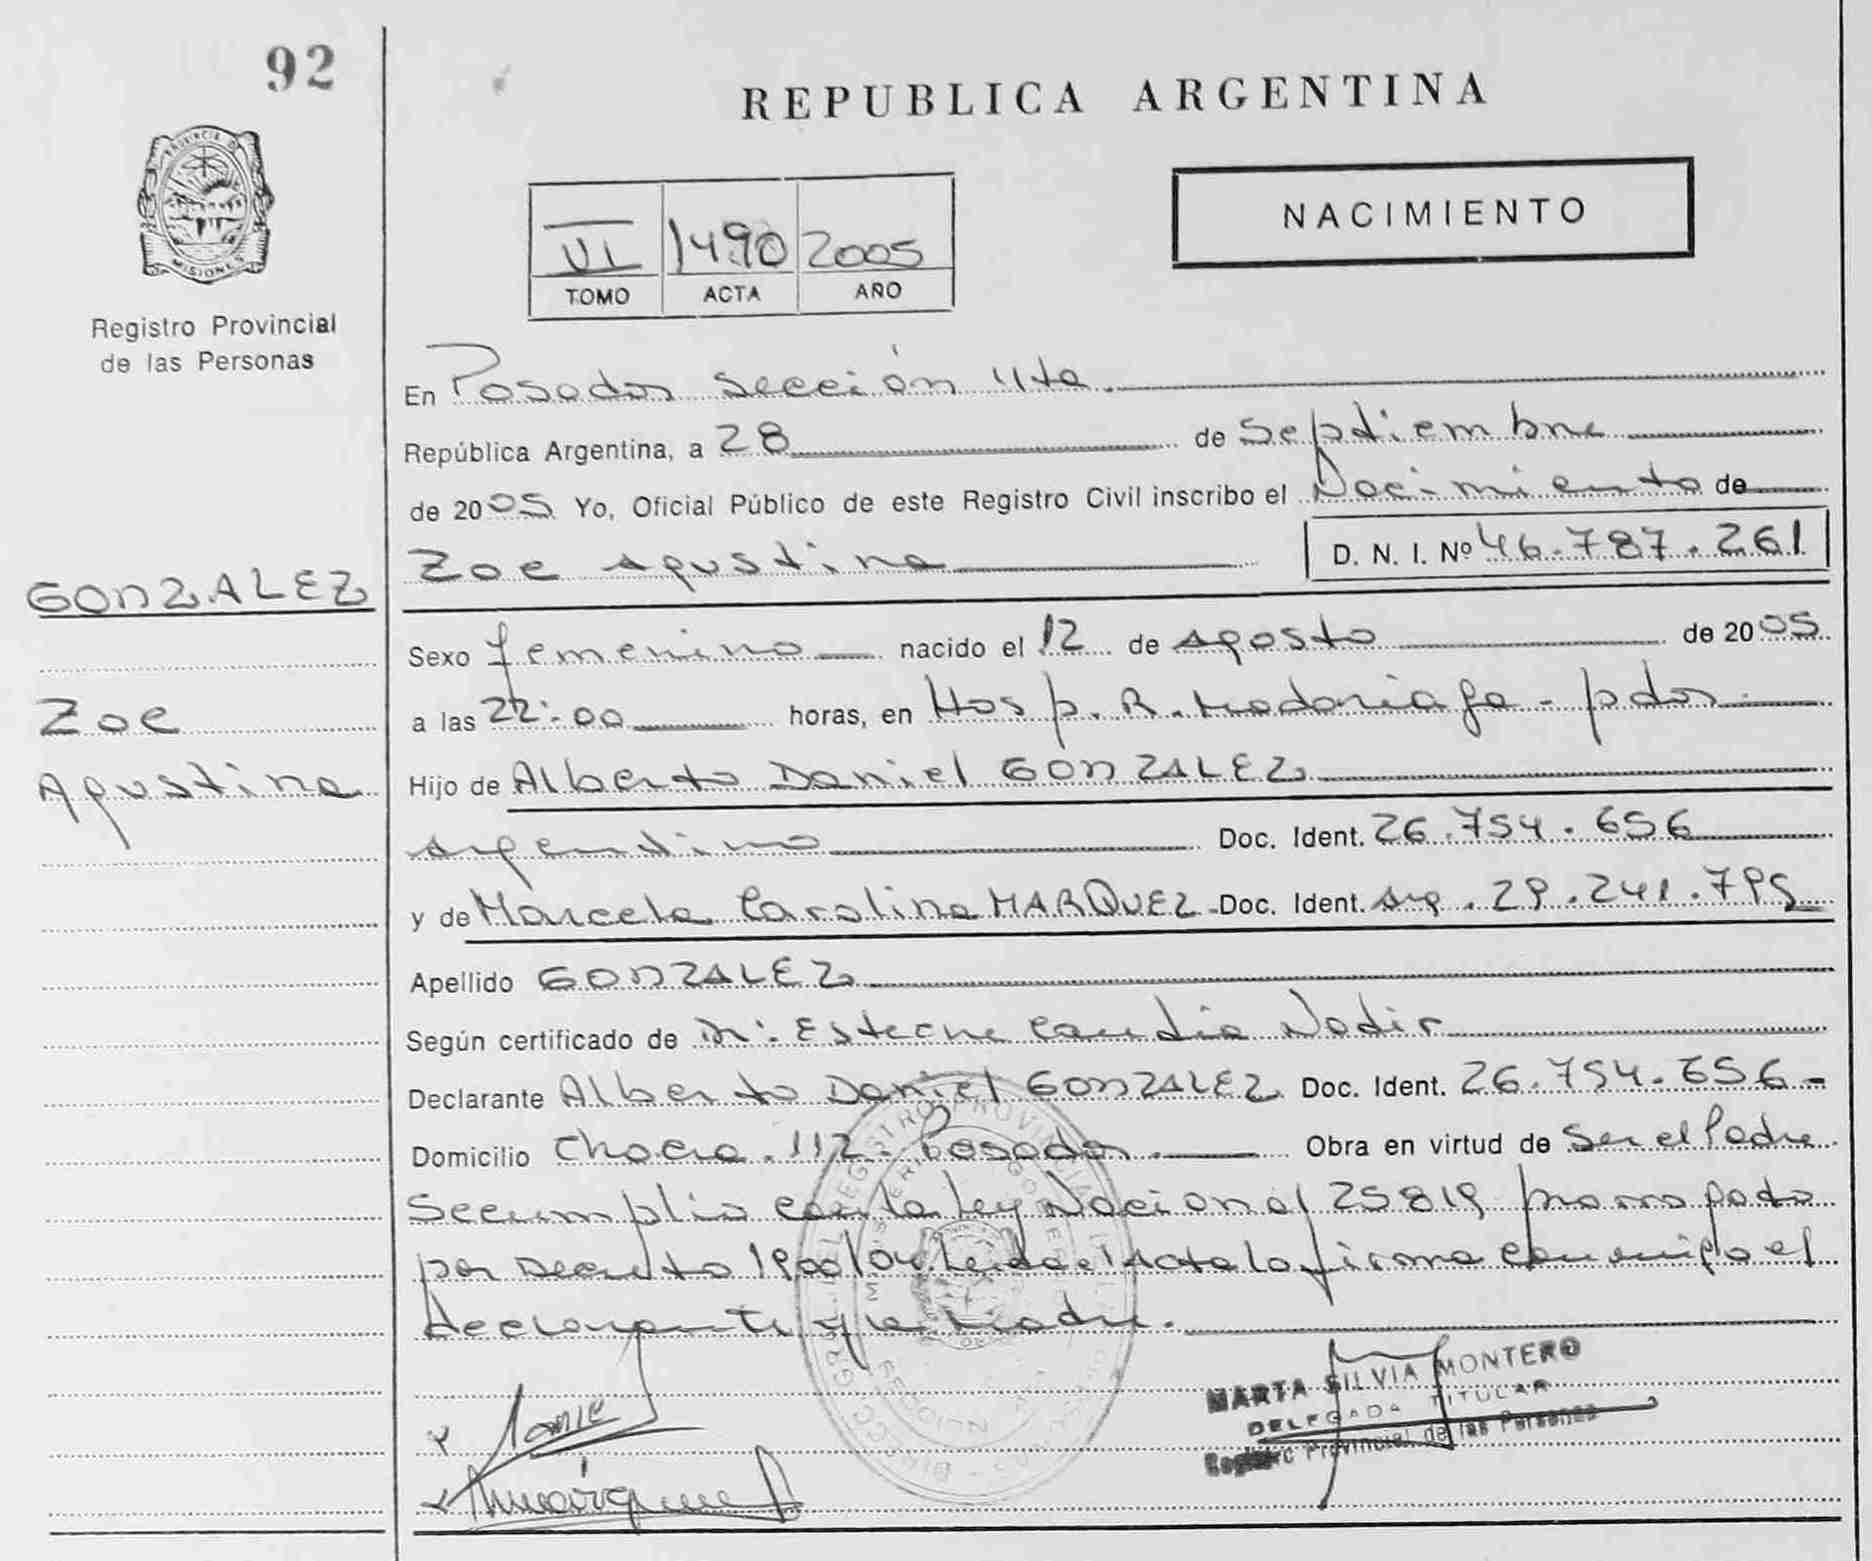 92
REPUBLICA ARGENTINA
PROVINCIA DE
MISIONES
Registro Provincial
de las Personas
VI 1490 2005
TOMO ACTA AÑO
NACIMIENTO
En Posadas sección 11ta.
República Argentina, a 28 de Septiembre
de 2005 Yo, Oficial Público de este Registro Civil inscribo el Nacimiento de
Zoe Agustina D. N. I. Nº 46.787.261
GONZALEZ
Zoe
Agustina
Sexo femenino nacido el 12 de Agosto de 2005
a las 22:00 horas, en Hosp. R. Madariaga - pdas.
Hijo de Alberto Daniel GONZALEZ
Argentino Doc. Ident. 26.754.656
y de Marcela Carolina MARQUEZ - Doc. Ident. Arg. 29.241.795
Apellido GONZALEZ
Según certificado de Nadir
Declarante Alberto Daniel GONZALEZ Doc. Ident. 26.754.656 -
Domicilio Chacra. 112. Posadas. Obra en virtud de Ser el Padre
Se cumplio con la Ley Nacional 25819 prorrogada
por Decreto 1900/04. Leida el Acta la firma conmigo el
declarante y la Madre.
MARTA SILVIA MONTERO
DELEGADA TITULAR
Registro Provincial de las Personas